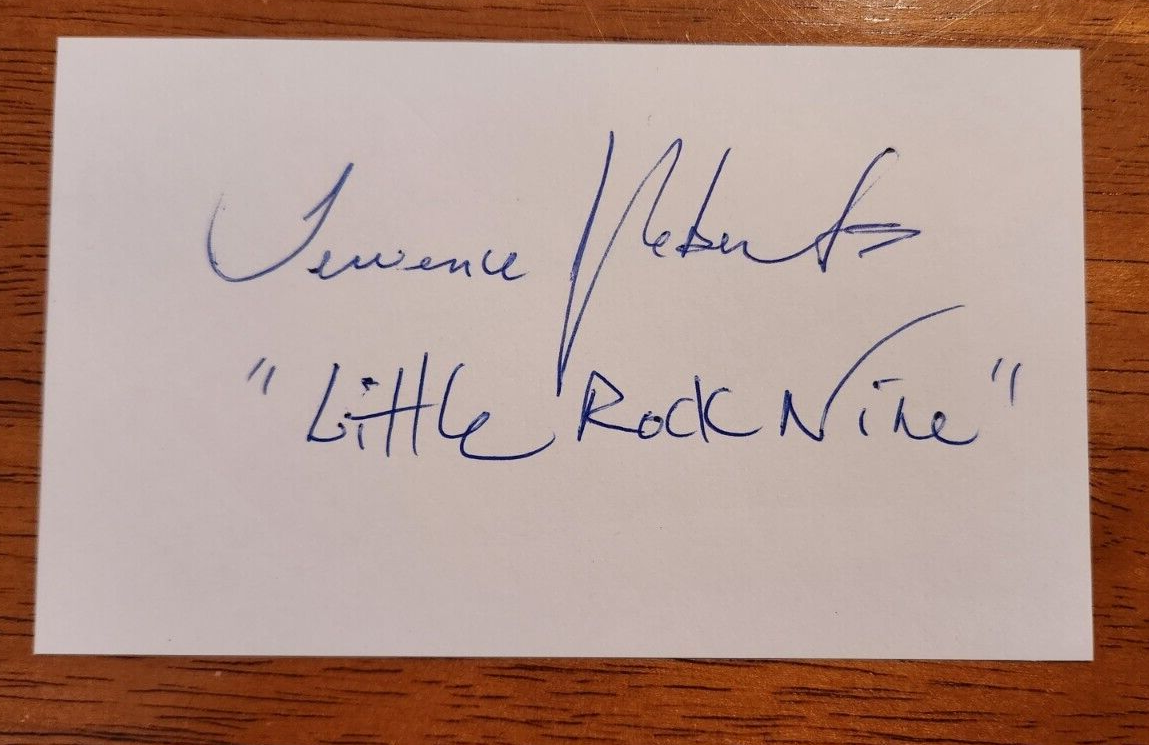 Terrence Roberts
"Little Rock Nine"